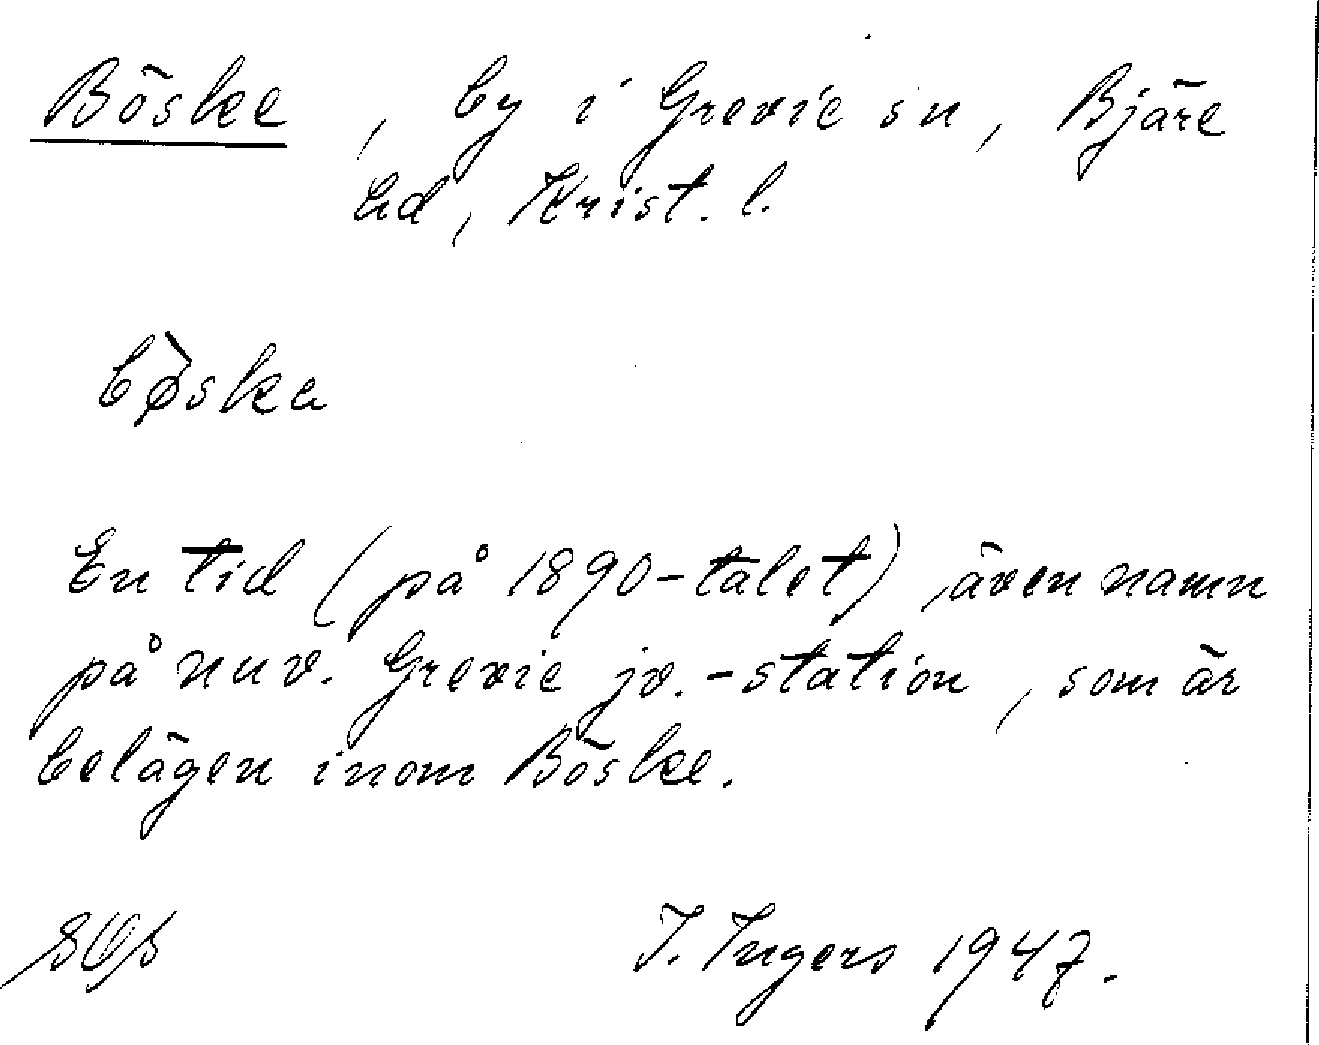 Böske, by i Grevie sn, Bjäre
hd, Krist. l.
bø̀ska
En tid (på 1890-talet) även namn
på nuv. Grevie jv.-station, som är
belägen inom Böske.
I. Ingers 1947.